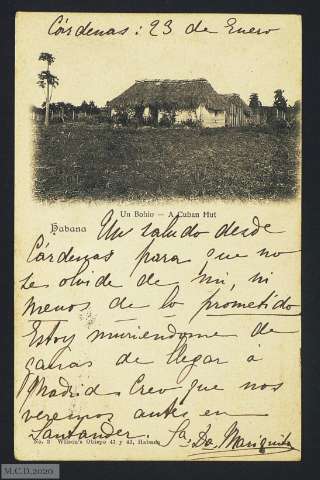 Cárdenas: 23 de Enero
Un Bohio — A Cuban Hut
Habana
Un saludo desde
Cárdenas para que no
se olvide de mi, ni
menos de lo prometido
Estoy muriendome de
ganas de llegar á
Madrid. Creo que nos
veremos antes en
Santander. Sa. Da. Mariquita
No. 8 Wilson's Obispo 41 y 43, Habana
M.C.D.2020